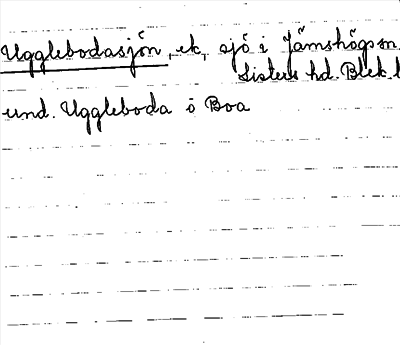 Ugglebodasjön, ek, sjö i Jämshögs sn
Listers hd. Blek. l
und. Uggleboda o Boa